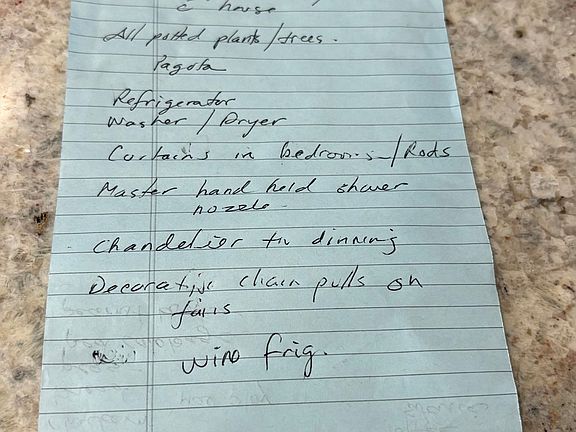 c house
All potted plants/trees.
Pagota
Refrigerator
Washer / Dryer
Curtains in bedrooms/Rods
Master hand held shower
nozzle
Chandelier in dinning
Decorative chain pulls on
fans
wine frig.